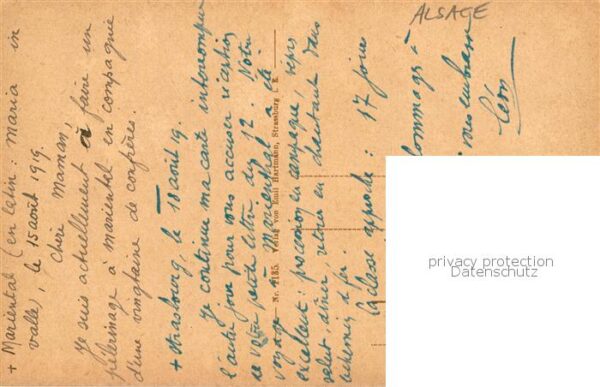 ALSACE
+ Mariental (en latin : maria in
valle), le 15 août 1919.
Chère Maman,
Je suis actuellement à faire un
pélerinage à mariental en compagnie
d'une vingtaine de confrères.
+ Strasbourg, le 18 août 19.
Je continue ma carte interrompue
l'autre jour pour vous accuser réception
de votre petite lettre du 12. Notre
voyage à Marienthal a été
excellent : procession en campagne, repos
salut, dîner, retour en chantant dans
le chemin de fer.
approche : 17 jours
hommages à
vous embrasse
Léon
Nr. 4185. Verlag von Emil Hartmann, Strassburg i. E.
privacy protection
Datenschutz